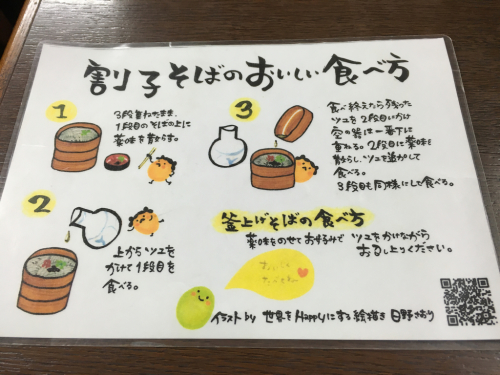 割子そばのおいしい食べ方
1
3段重ねたまま、
1段目のそばの上に
薬味を散らす。
2
上からツユを
かけて1段目を
食べる。
3
食べ終えたら残った
ツユを2段目にかけ
空の器は一番下に
重ねる。2段目に薬味を
散らし、ツユを追かして
食べる。
3段目も同様にして食べる。
釜上げそばの食べ方
薬味をのせてお好みで ツユをかけながら
お召し上りください。
イラスト by 世界をHappyにする絵描き 日野さおり